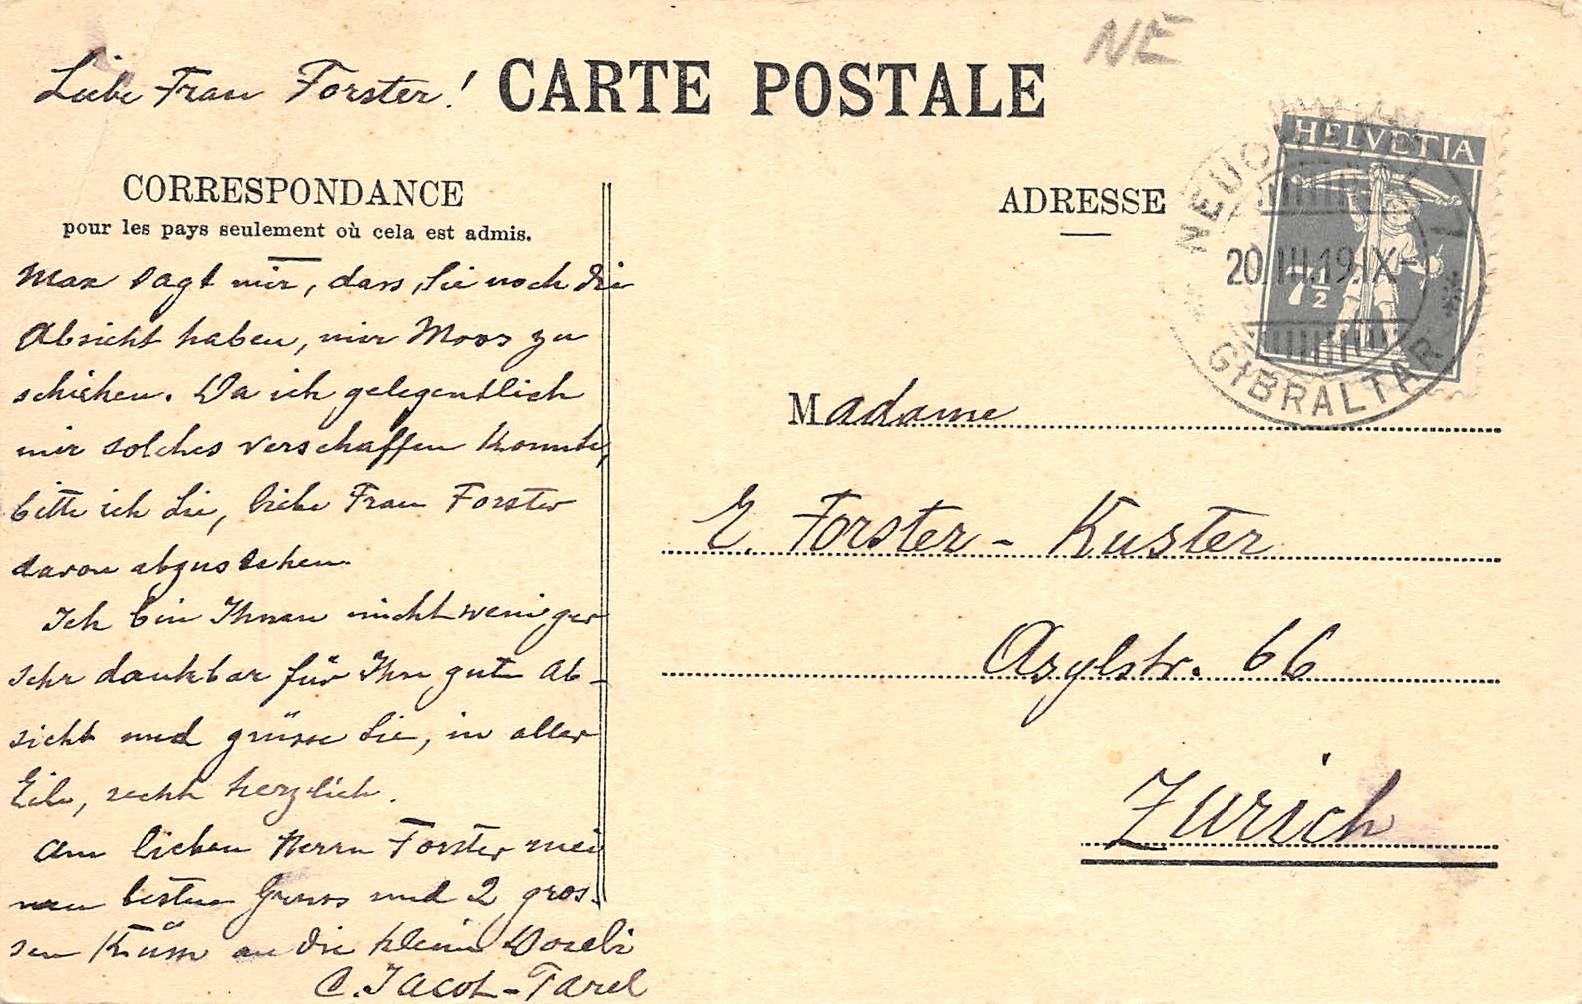 NE
Liebe Frau Forster!
CARTE POSTALE
CORRESPONDANCE
pour les pays seulement où cela est admis.
ADRESSE
HELVETIA
7½
20.III.19.IX-
GIBRALTAR
Max sagt mir, dass Sie noch die
Absicht haben, mir Moos zu
schicken. Da ich gelegentlich
mir solches verschaffen konnte,
bitte ich Sie, liebe Frau Forster
davon abzusehen.
Ich bin Ihnen nicht weniger
sehr dankbar für Ihre gute Ab-
sicht und grüsse Sie, in aller
Eile, recht herzlich.
Am lieben Herrn Forster mei
nen besten Gruss und 2 gros-
sen Küsse an die kleine
C. Jacot-Farel
Madame
E. Forster-Kuster
Asylstr. 66
Zürich